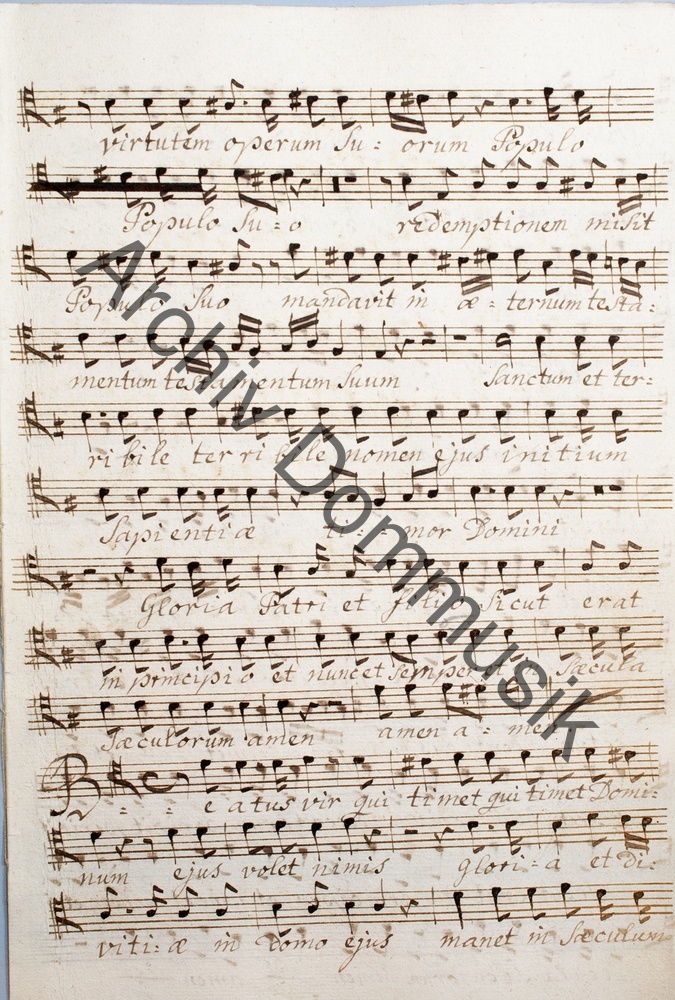 virtutem operum Su: orum Populo
Populo Su: o redemptionem misit
Populo Suo mandavit in æ: ternum testa:
mentum testamentum Suum Sanctum et ter:
ribile terribile nomen ejus initium
Sapientiæ ti: mor Domini
Gloria Patri et filio Sicut erat
in principio et nunc et Semper et in Sæcula
Sæculorum amen amen a: men
B: : eatus vir qui timet qui timet Domi:
num ejus volet nimis glori: a et di:
viti: æ in domo ejus manet in Sæculum
Archiv Dommusik